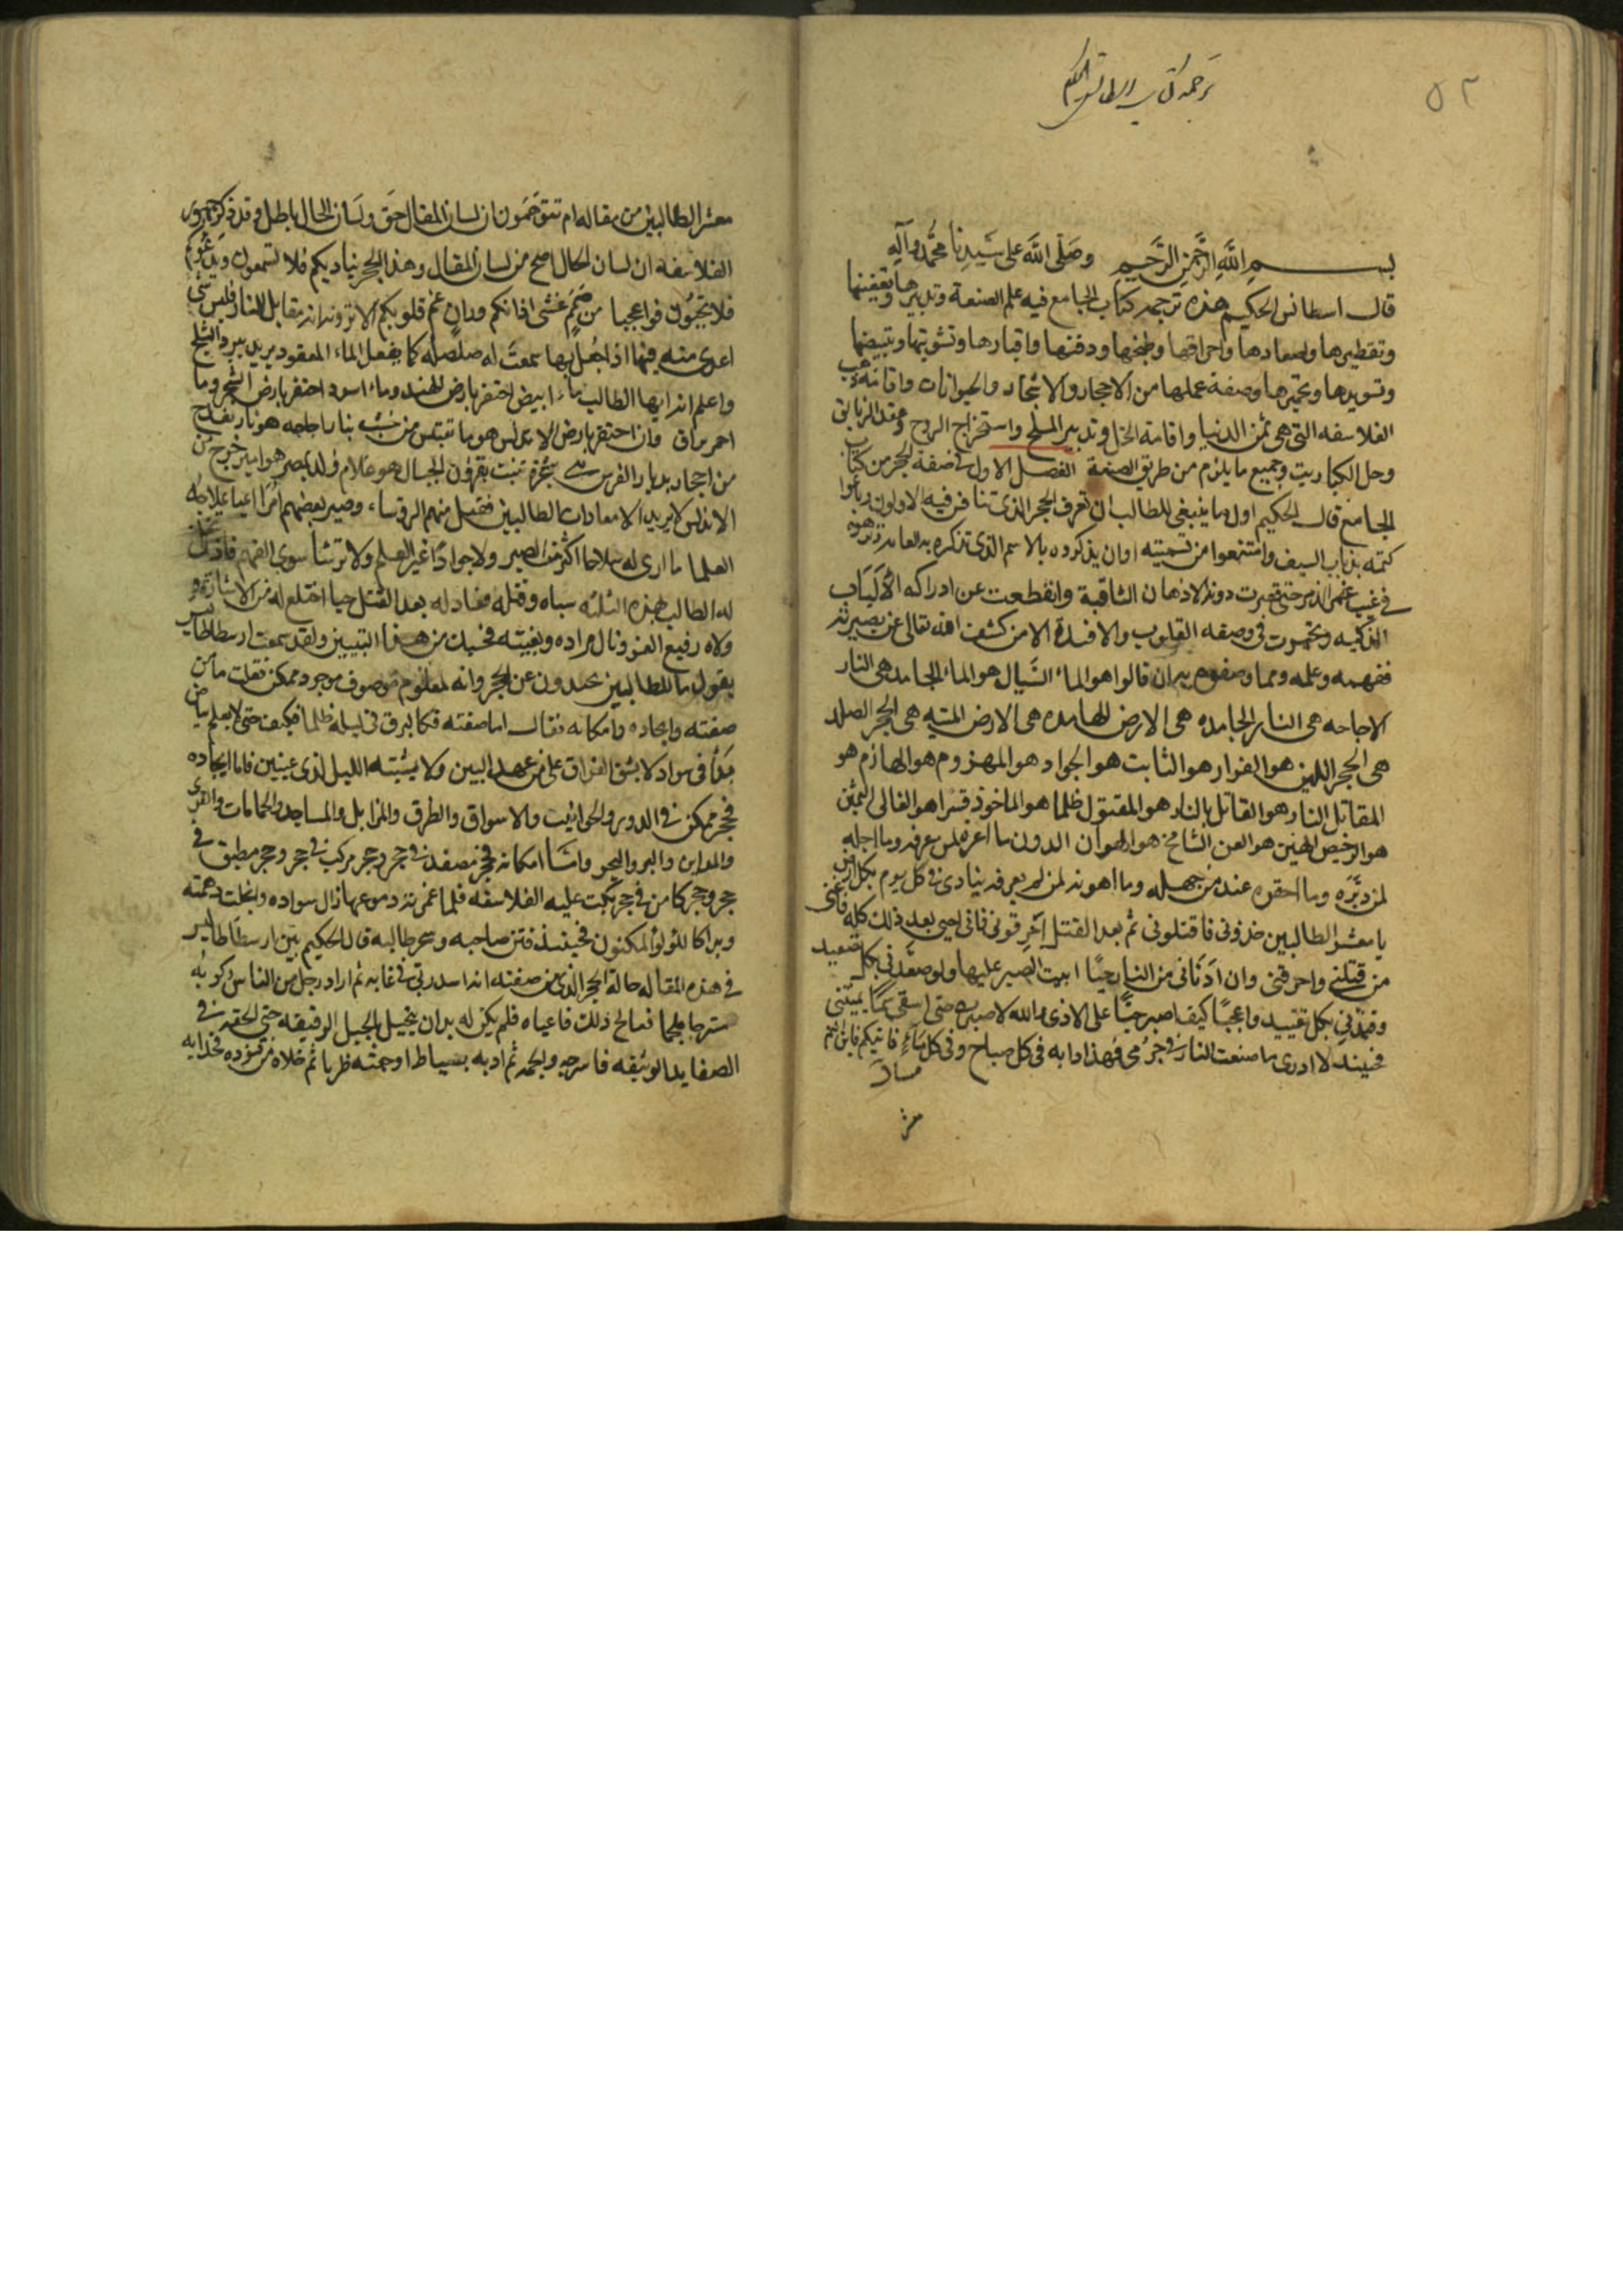 ٥٢
ترجمة كتاب اسطانس الحكيم
بسم الله الرحمن الرحيم وصلى الله على سيدنا محمد وآله
قال اسطانس الحكيم هذه ترجمه كتاب الجامع فيه علم الصنعة وتدبيرها وتعفينها
وتقطيرها واصعادها واحراقها وطبخها ودفنها واقبارها وتشويتها وتبييضها
وتسويدها وتحميرها وصفة عملها من الاحجار والاشجار والحيوانات واقامة
الفلاسفه التى هى ثمن الدنيا واقامة الخل وتدبير الملح واستخراج الروح وعقد الزيابق
وحل الكباريت وجميع ما يلزم من طريق الصنعة الفصل الاول فى صفة الحجر من كتاب
الجامع قال الحكيم اول ما ينبغى للطالب ان تعرف الحجر الذى تنافس فيه الاولون
كتمه بذباب السيف وامتنعوا من تسميته اوان يذكروه بالاسم الذى تذكره به العامه
حتى قصرت دونه الاذهان الثاقبة وانقطعت عن ادراكه الألباب
الذكيه وتحيرت فى وصفه القلوب والافئدة الا من كشف الله تعالى عن بصيرته
ففهمه وعلمه ومما وصفوه به ان قالوا هو الماء السيال هو الماء الجامد هى النار
الاجاجه هى النار الجامده هى الارض الهامده هى الارض الميته هى الحجر الصلد
هى الحجر اللين هو الفرار هو الثابت هو الجواد هو المهزوم هو الهازم هو
المقاتل النار هو القاتل بالنار هو المقتول ظلما هو الماخوذ قسرا هو الغالى الثمين
هو الرخيص الهين هو العز الشامخ هو الهوان الدون ما اعزه لمن عرفه وما اجله
لمن دبره وما احقره عند من جهله وما اهونه لمن لم يعرفه ينادى فى كل يوم بكل ارض
يا معشر الطالبين خذونى فاقتلونى ثم بعد القتل احرقونى فانى احيى بعد ذلك كله
من قتلنى واحرقنى وان ادنانى من النار حيا ابيت الصبر عليها ولو صعدنى بكل تصعيد
وقيدنى بكل تقييد واعجبا كيف اصبر حيا على الاذى والله لا صبرت حتى اسقى سما يميتنى
فحينئذ لا ادرى ما صنعت النار فى جرمى فهذا دابه فى كل صباح وفى كل مساء
معشر الطالبين من مقاله ام تتوهمون ان لسان المقال حق ولسان الحال باطل وقد ذكر جمهور
الفلاسفه ان لسان الحال اصح من لسان المقال وهذا الحجر يناديكم فلا تسمعون ويدعوكم
فلا تجيبون فواعجبا من صمم غشى اذانكم وران غم قلوبكم الا ترونه انه مقابل للنار فليس شى
اعدى منه فيها اذا جعل بها سمعت له صلصله كما يفعل الماء المعقود ببرد الثلج
واعلم انه ايها الطالب ماء ابيض احتفر بارض الهند وماء اسود احتفر بارض الشحر وما
احمر براق وان احتفر بارض الاندلس هو ما تقتبس من خشب
من احجار بديار الفرس هى شجرة تنبت بقرون الجبال هو غلام ولد بمصر هو امير خرج من
الاندلس لا يريد الا معادات الطالبين فقتل منهم الروساء وصير بعضهم امرا اعيا علاجه
العلما ما ارى له سلاحا اكثر من الصبر ولا جوادا غير العلم ولا ترسا سوى الفهم
له الطالب بهذه الثلثه سباه وقتله وعاد له بعد القتل حيا
ولاه رفيع العز ونال مراده وبغيته فحسبك من هذا التبيين ولقد سمعت ارسطاطاليس
يقول ما للطالبين يحيدون عن الحجر وانه لمعلوم موصوف موجود ممكن فقلت ما
صفته وايجاده وامكانه فقال اما صفته فكالبرق فى ليله ظلما فكيف
فى سواد ولا يشبه الليل لذى عينين فاما ايجاده
فحجر ممكن فى الدور والحوانيت والاسواق والطرق والمزابل والمساجد والحمامات والقرى
والمداين والبر والبحر واما امكانه فحجر مصفد فى حجر وحجر مركب فى حجر وحجر مطبق فى
حجر وحجر كامن فى حجر بكت عليه الفلاسفه فلما غمرته دموعها زال سواده وانجلت دهمته
وبدا كاللؤلؤ المكنون فحينئذ فتن صاحبه وسحر طالبه قال الحكيم بين ارسطاطاليس
فى هذه المقاله حالة الحجر الذى من صفته انه اسد ربى فى غابه ثم اراد رجل من الناس ركوبه
مسرجا ملجما فعالج ذلك فاعياه فلم يكن له بد ان يتحيل بالحيل الرقيقه حتى
الصفايد الوثيقه فاسرجه والجمه ثم ادبه بسياط اوجعته ضربا ثم خلاه من قيوده